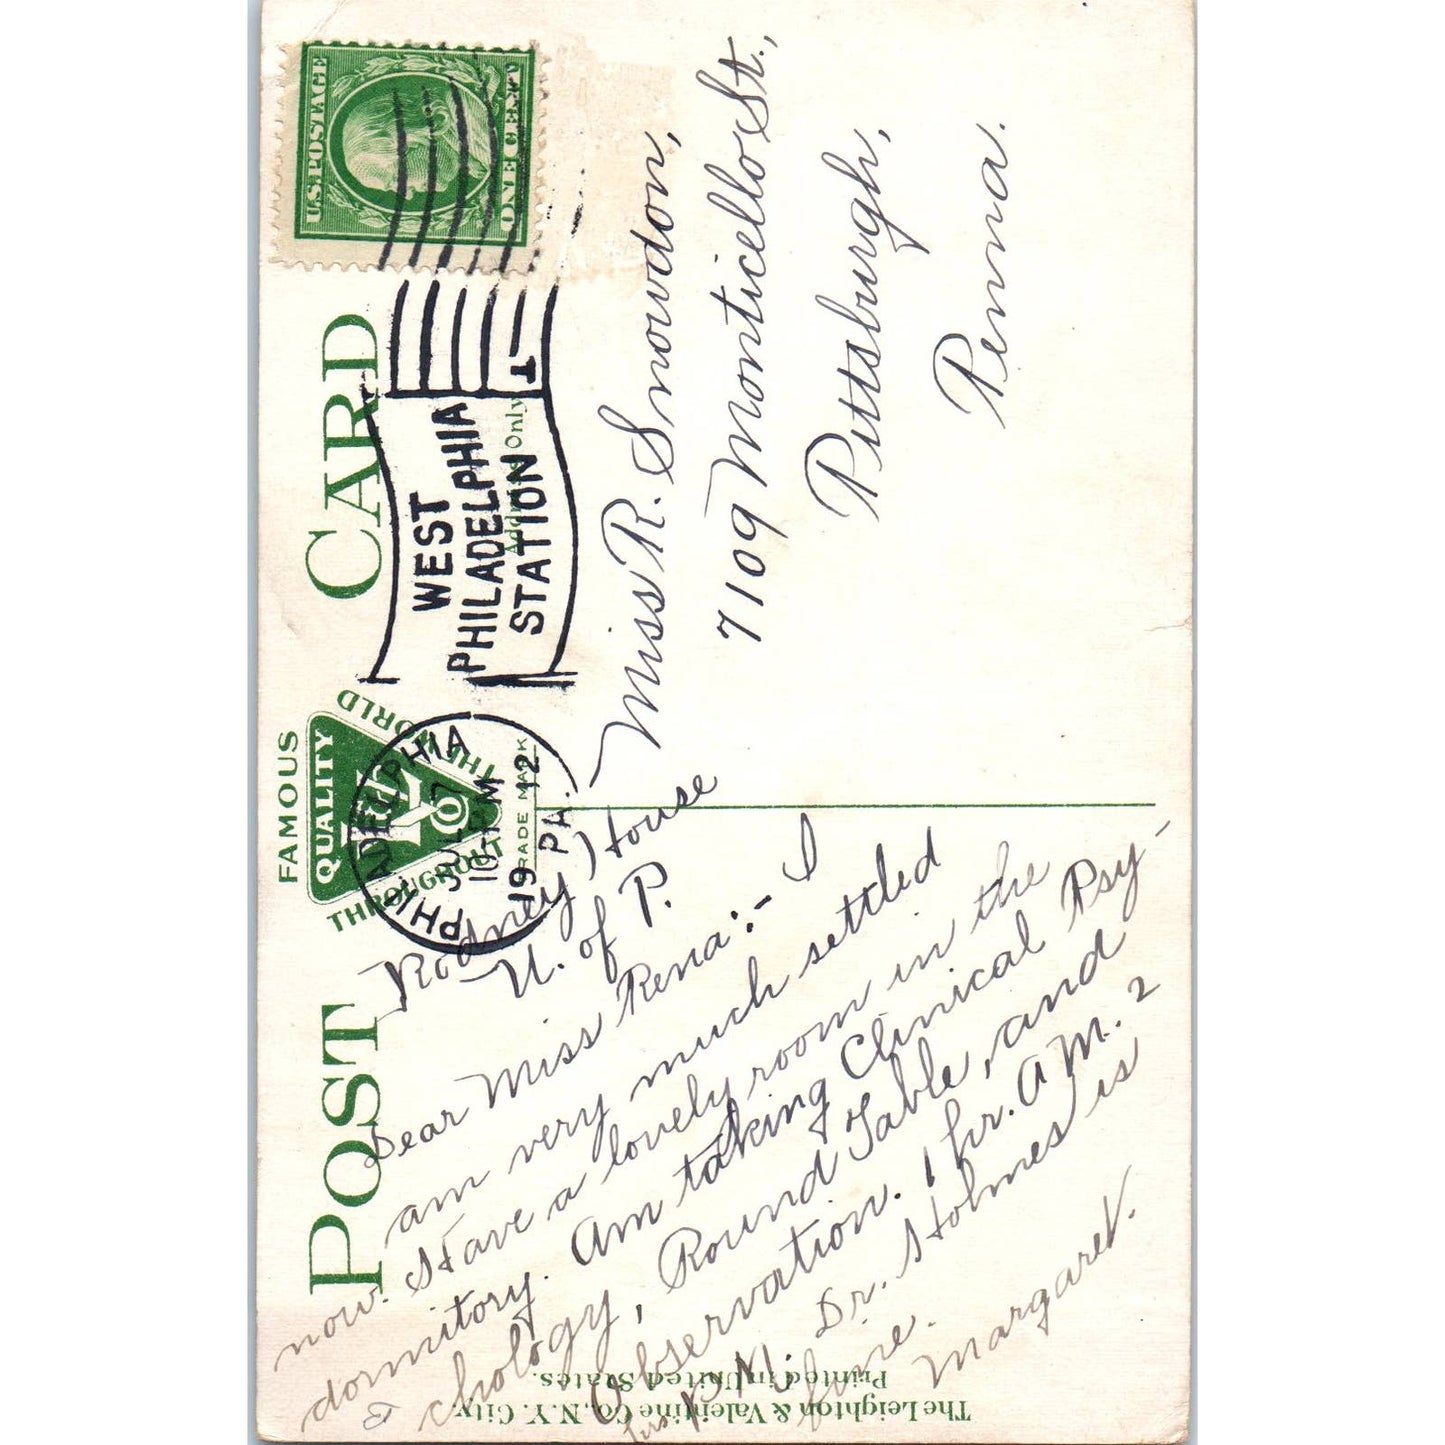 POST CARD
FAMOUS
QUALITY
THROUGHOUT THE WORLD
TRADE MARK
Address Only
U.S. POSTAGE
ONE CENT
PHILADELPHIA
JUL 7
10-PM
1912
PA.
WEST
PHILADELPHIA
STATION
1
Miss R. Snowdon,
7109 Monticello St.,
Pittsburgh,
Penna.
Rodney House
U. of P.
Dear Miss Rena:- I
am very much settled
now. Have a lovely room in the
dormitory. Am taking Clinical Psy-
chology, Round Table, and
Observation. 1 hr. A M. 2
hrs. P.M. Dr. Holmes is
fine.
Margaret.
The Leighton & Valentine Co., N.Y. City.
Printed in United States.